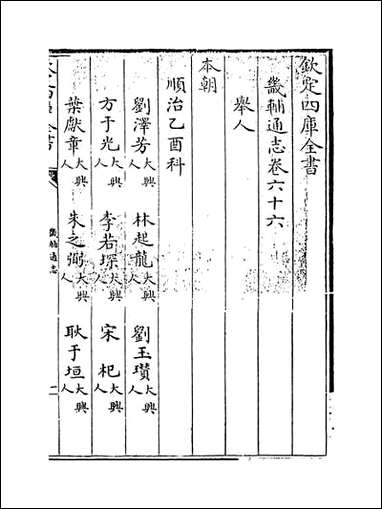 欽定四庫全書
畿輔通志卷六十六
舉人
本朝
順治乙酉科
劉澤芳大興人 林起龍大興人 劉玉瓚大興人
方于光大興人 李若琛大興人 宋杞大興人
葉獻章大興人 朱之弼大興人 耿于垣大興人
畿輔通志